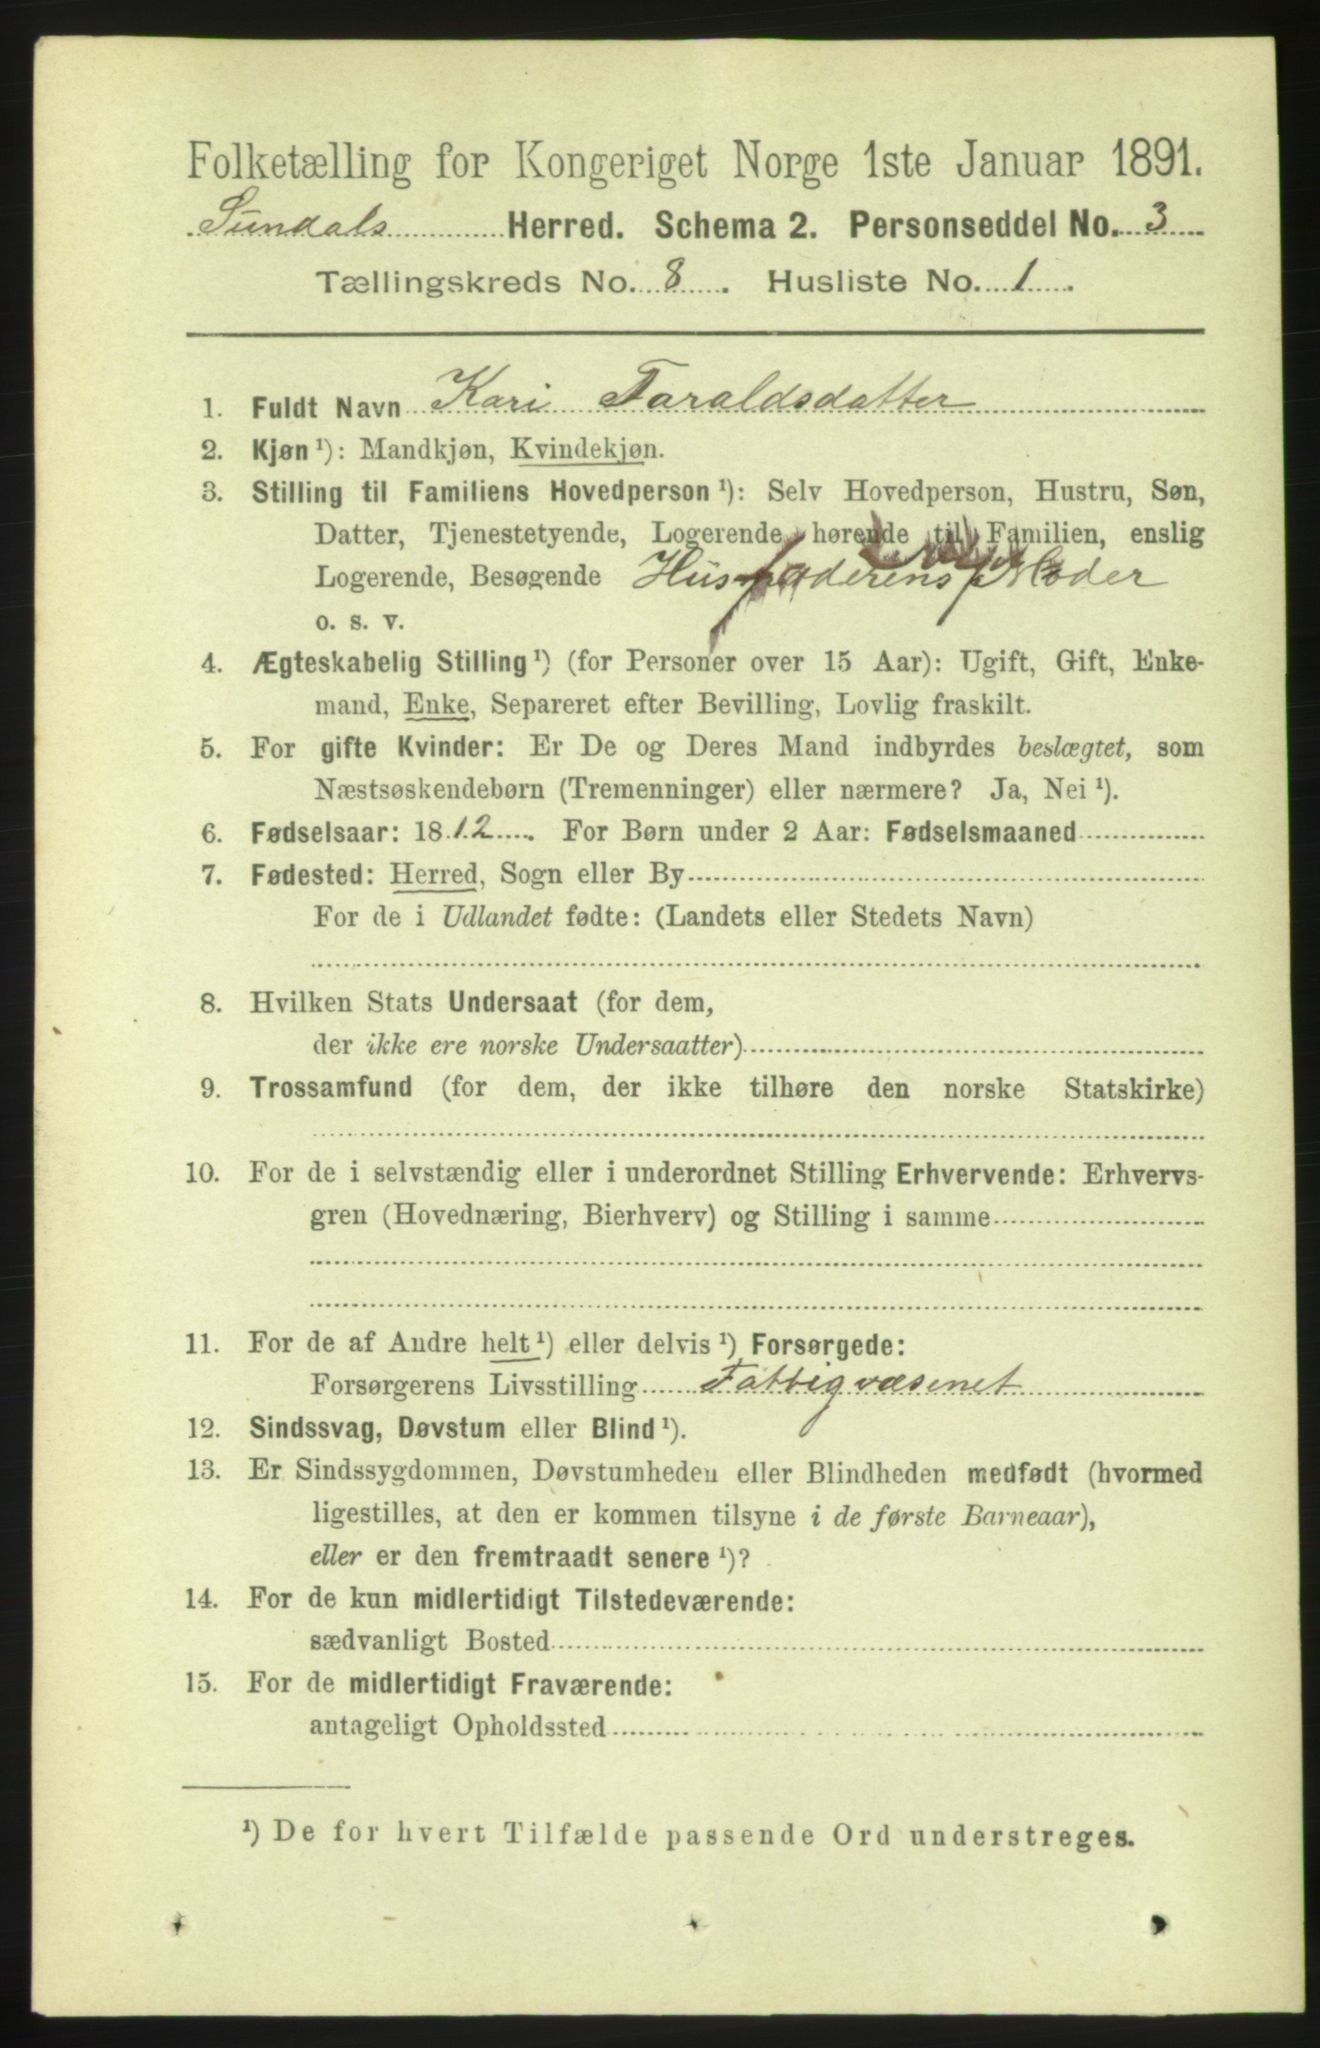 Folketælling for Kongeriget Norge 1ste Januar 1891.
Sundals Herred. Schema 2. Personseddel No. 3
Tællingskreds No. 8. Husliste No. 1.
1. Fuldt Navn Kari Taraldsdatter
2. Kjøn ¹): Mandkjøn, Kvindekjøn.
3. Stilling til Familiens Hovedperson ¹): Selv Hovedperson, Hustru, Søn,
Datter, Tjenestetyende, Logerende hørende til Familien, enslig
Logerende, Besøgende Husfaderens Moder
o. s. v.
4. Ægteskabelig Stilling ¹) (for Personer over 15 Aar): Ugift, Gift, Enke-
mand, Enke, Separeret efter Bevilling, Lovlig fraskilt.
5. For gifte Kvinder: Er De og Deres Mand indbyrdes beslægtet, som
Næstsøskendebørn (Tremenninger) eller nærmere? Ja, Nei ¹).
6. Fødselsaar: 1812. For Børn under 2 Aar: Fødselsmaaned
7. Fødested: Herred, Sogn eller By
For de i Udlandet fødte: (Landets eller Stedets Navn)
8. Hvilken Stats Undersaat (for dem,
der ikke ere norske Undersaatter)
9. Trossamfund (for dem, der ikke tilhøre den norske Statskirke)
10. For de i selvstændig eller i underordnet Stilling Erhvervende: Erhvervs-
gren (Hovednæring, Bierhverv) og Stilling i samme
11. For de af Andre helt ¹) eller delvis ¹) Forsørgede:
Forsørgerens Livsstilling Fattigvæsenet
12. Sindssvag, Døvstum eller Blind ¹).
13. Er Sindssygdommen, Døvstumheden eller Blindheden medfødt (hvormed
ligestilles, at den er kommen tilsyne i de første Barneaar),
eller er den fremtraadt senere ¹)?
14. For de kun midlertidigt Tilstedeværende:
sædvanligt Bosted
15. For de midlertidigt Fraværende:
antageligt Opholdssted
¹) De for hvert Tilfælde passende Ord understreges.